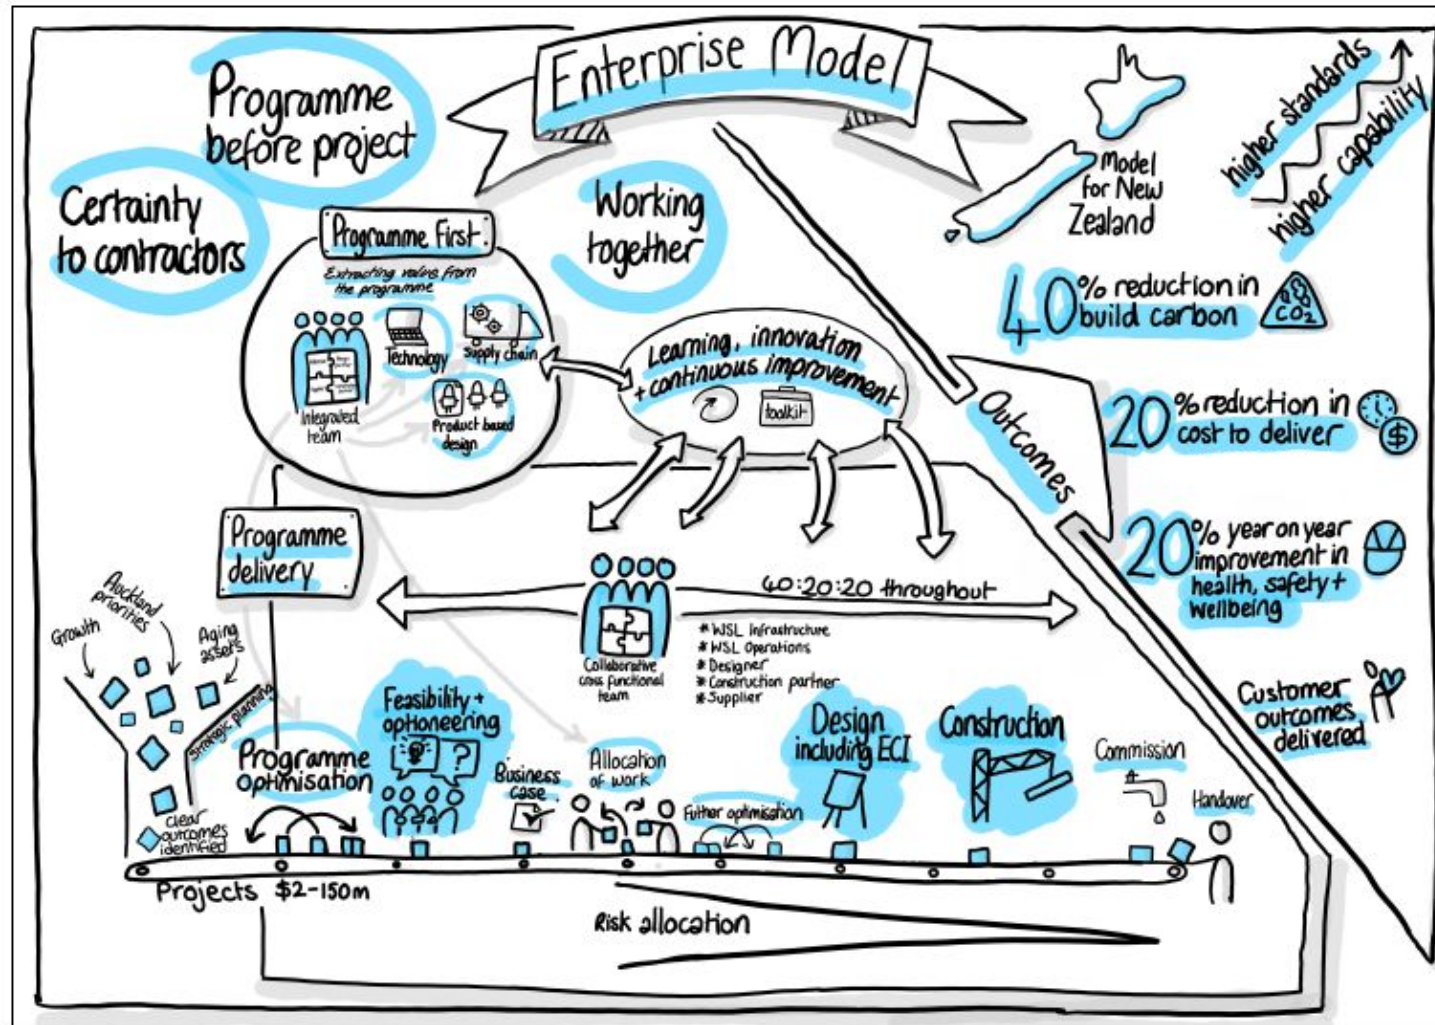 Enterprise Model
Programme
before project
Certainty
to contractors
Working
together
Model
for New
Zealand
higher standards
higher capability
Programme First
Extracting value from
the programme
Integrated
team
Technology
Supply chain
Product based
design
Learning, innovation
+ continuous improvement
toolkit
Outcomes
40% reduction in
build carbon
CO2
20% reduction in
cost to deliver
$
20% year on year
improvement in
health, safety +
wellbeing
Customer
outcomes
delivered
Programme
delivery
40:20:20 throughout
Collaborative
cross functional
team
* WSL Infrastructure
* WSL Operations
* Designer
* Construction partner
* Supplier
Growth
Auckland
priorities
Aging
assets
Strategic planning
clear
outcomes
identified
Programme
optimisation
Feasibility +
optioneering
?
Business
case
Allocation
of work
Futher optimisation
Design
including ECI
Construction
Commission
Handover
Projects $2-150m
Risk allocation